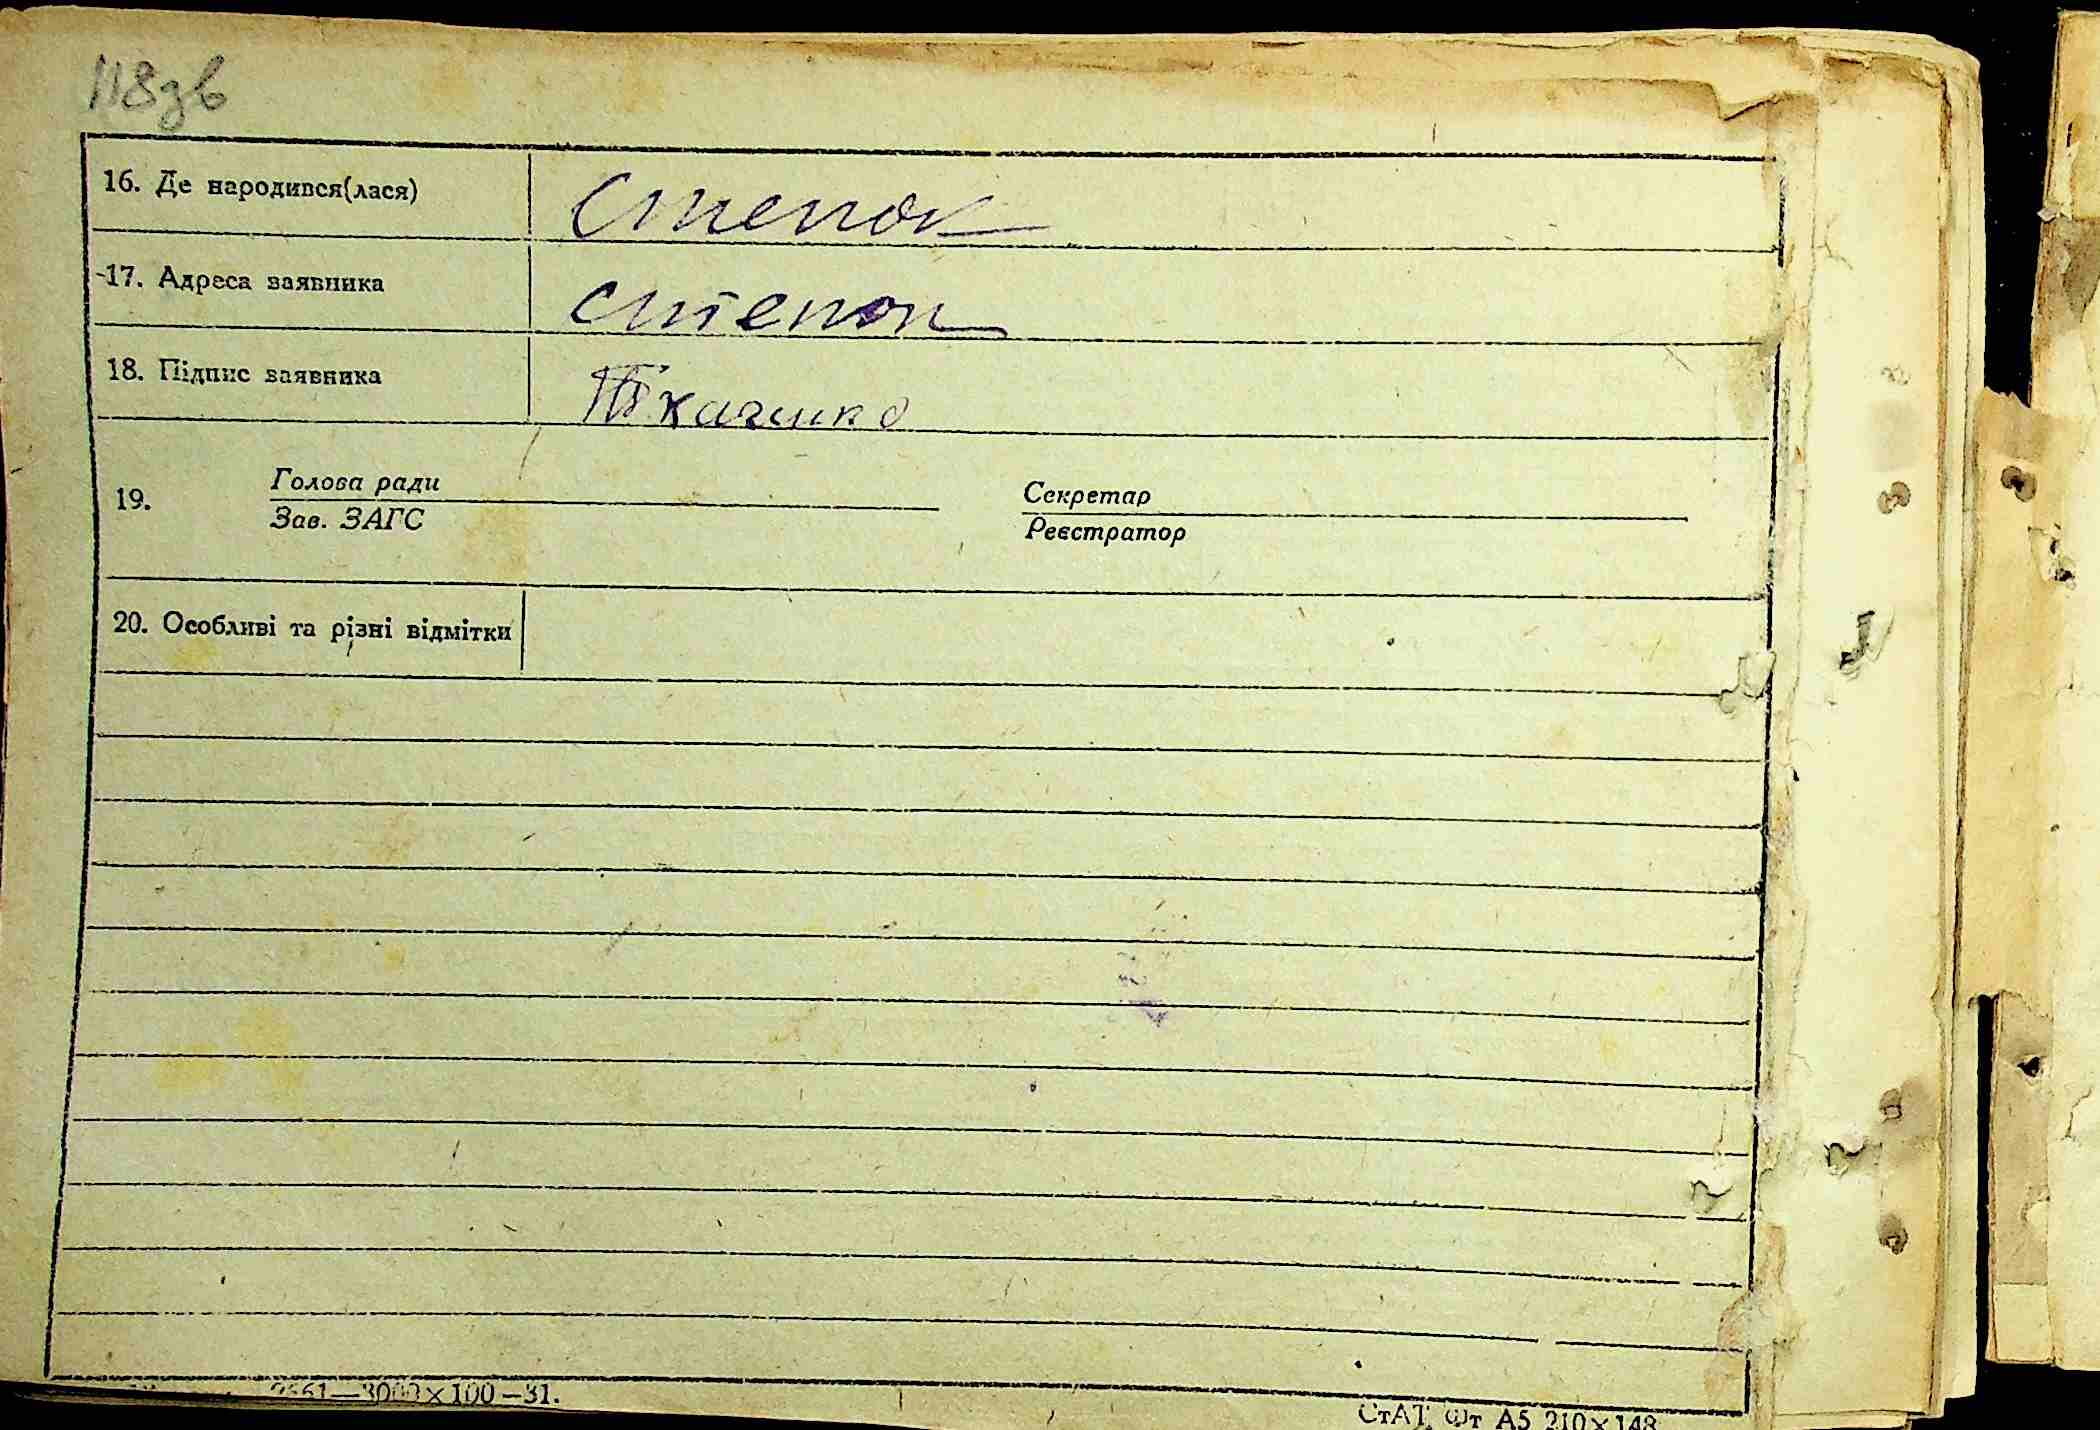 118зв
16. Де народився(лася) Степок
17. Адреса заявника Степок
18. Підпис заявника Ткаченко
19. Голова ради Секретар
Зав. ЗАГС Реєстратор
20. Особливі та різні відмітки
3000×100—31.
СтАТ. Фт А5 210×148